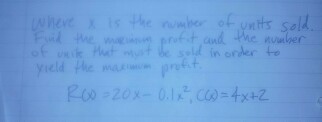 where x is the number of units sold.
Find the maximum profit and the number
of units that must be sold in order to
yield the maximum profit.
R(x) = 20x - 0.1x², C(x) = 4x+2